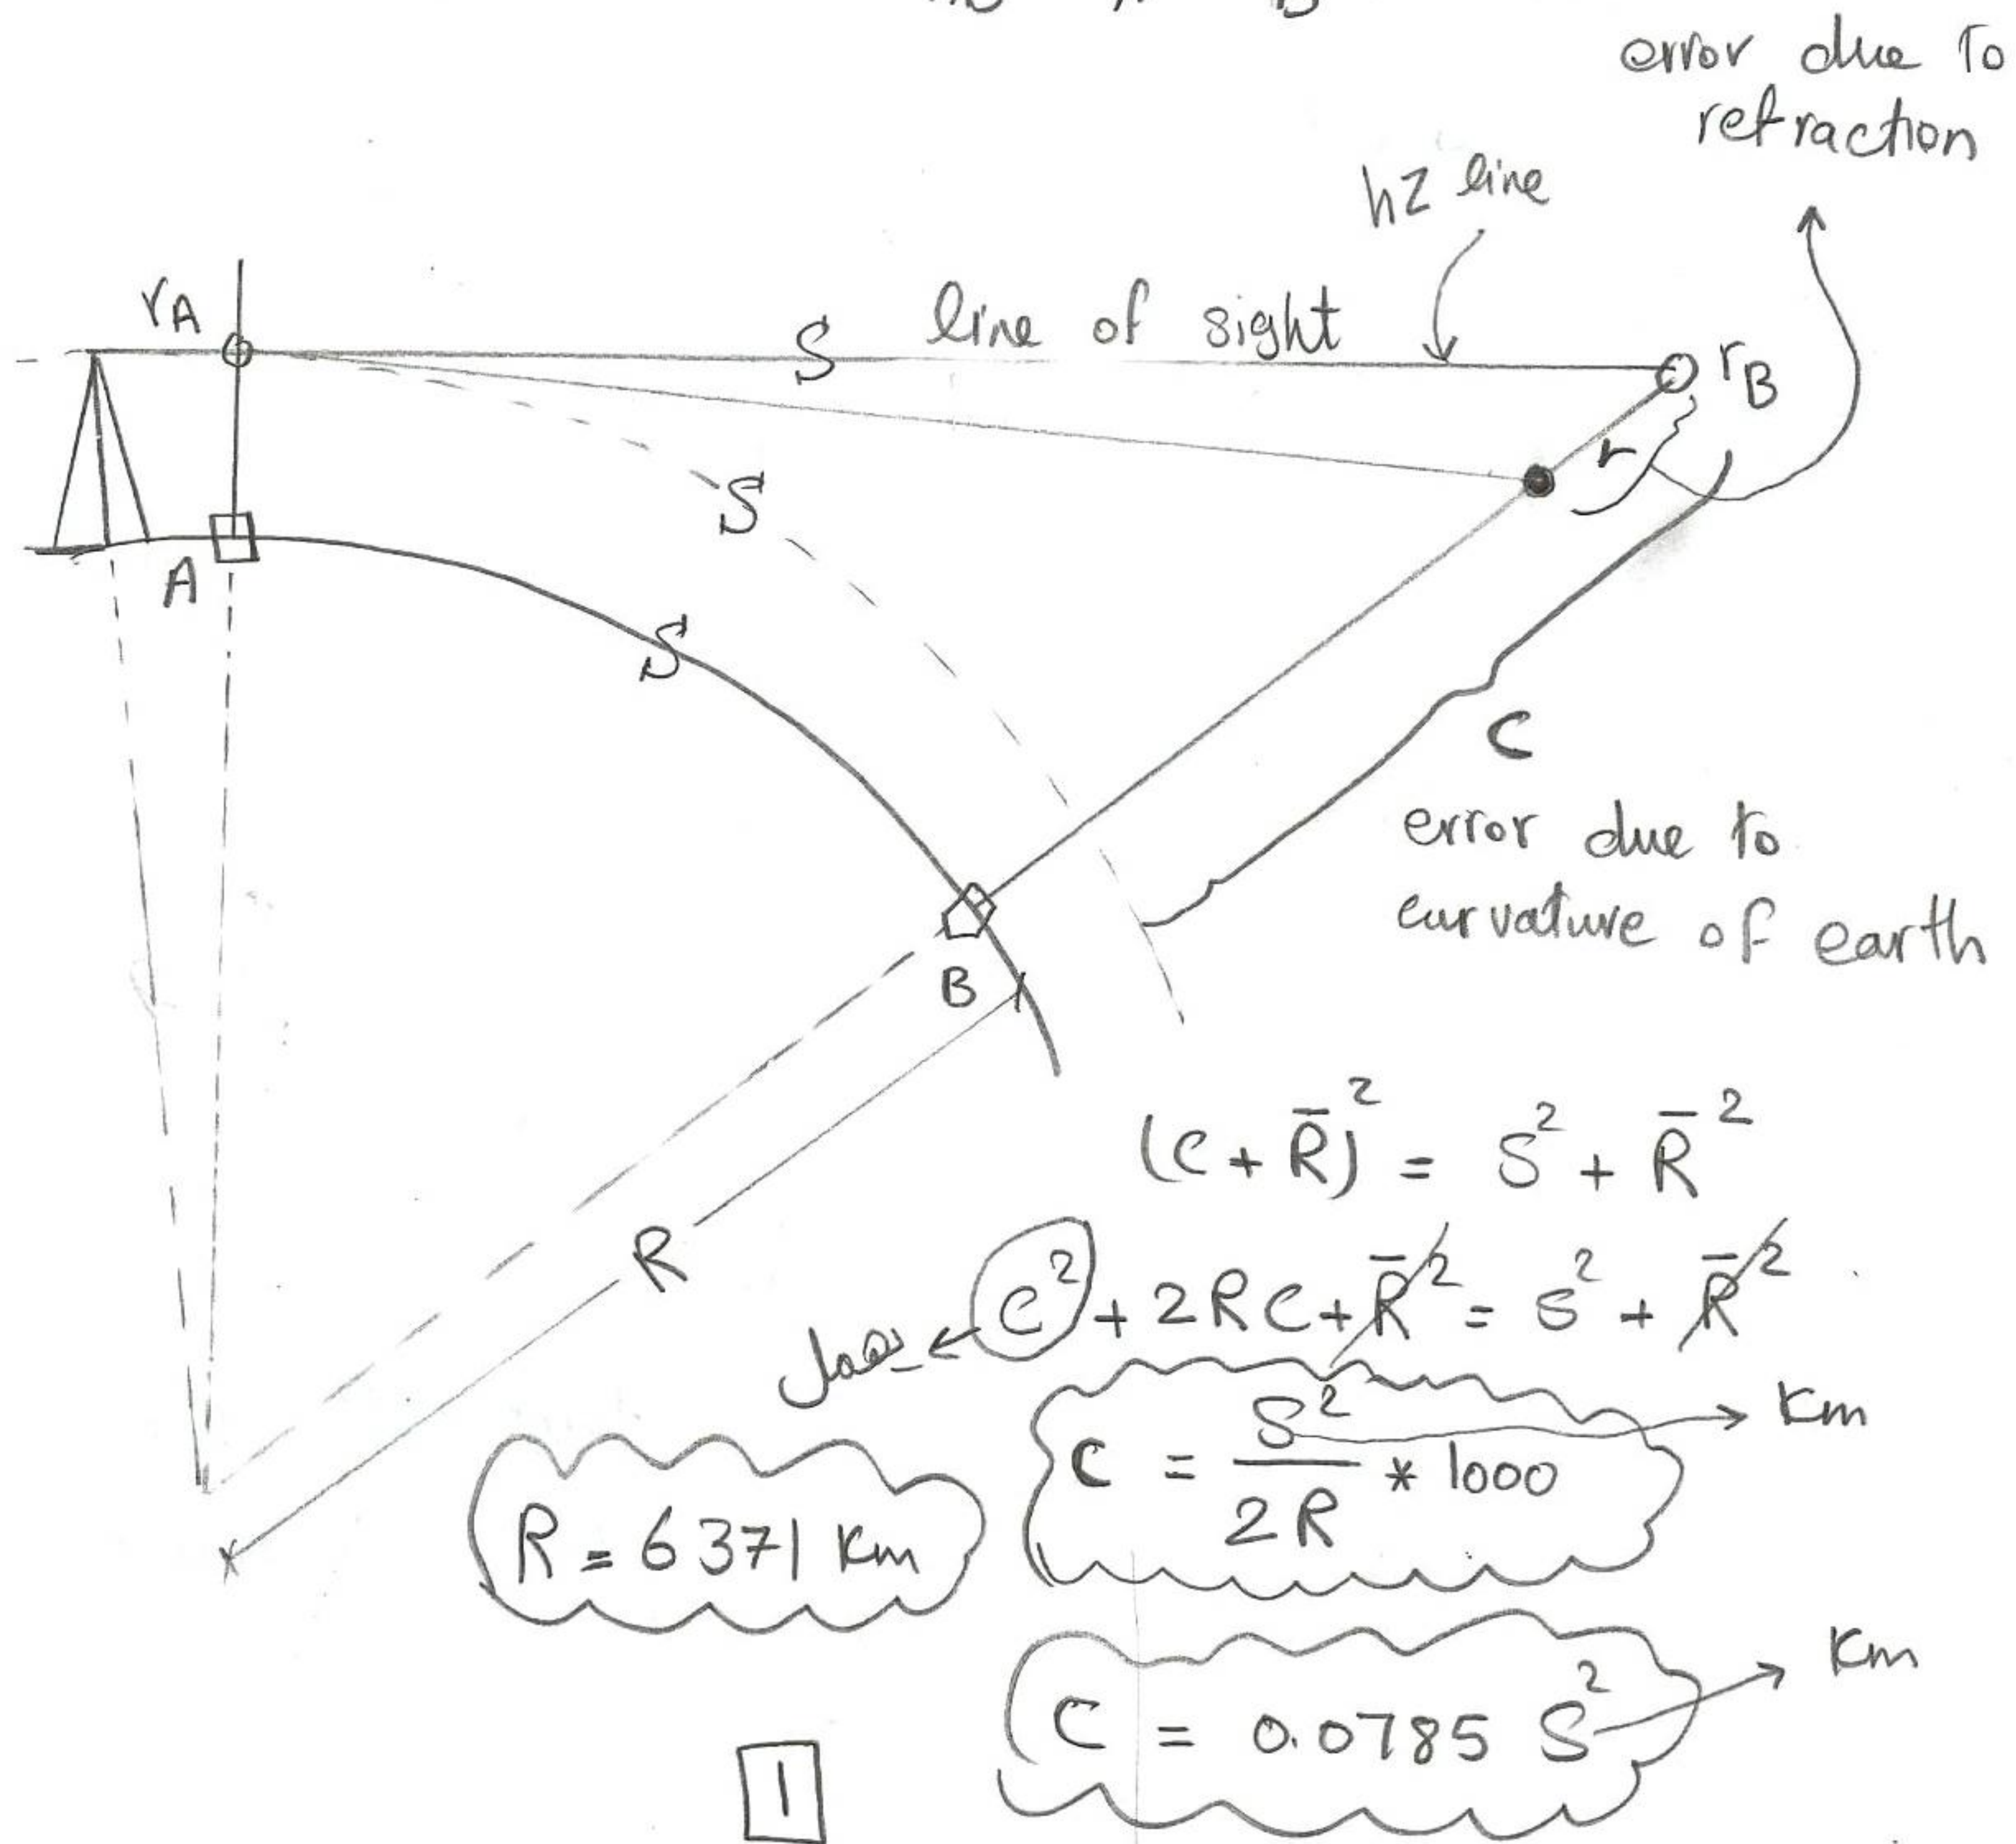 error due to
refraction
hz line
rA
line of sight
S
rB
r
S
A
S
C
error due to
curvature of earth
B
(C + R̄)² = S² + R̄²
R
C² + 2RC + R̄² = S² + R̄²
C = S² / 2R * 1000 → Km
R = 6371 Km
C = 0.0785 S² → Km
1